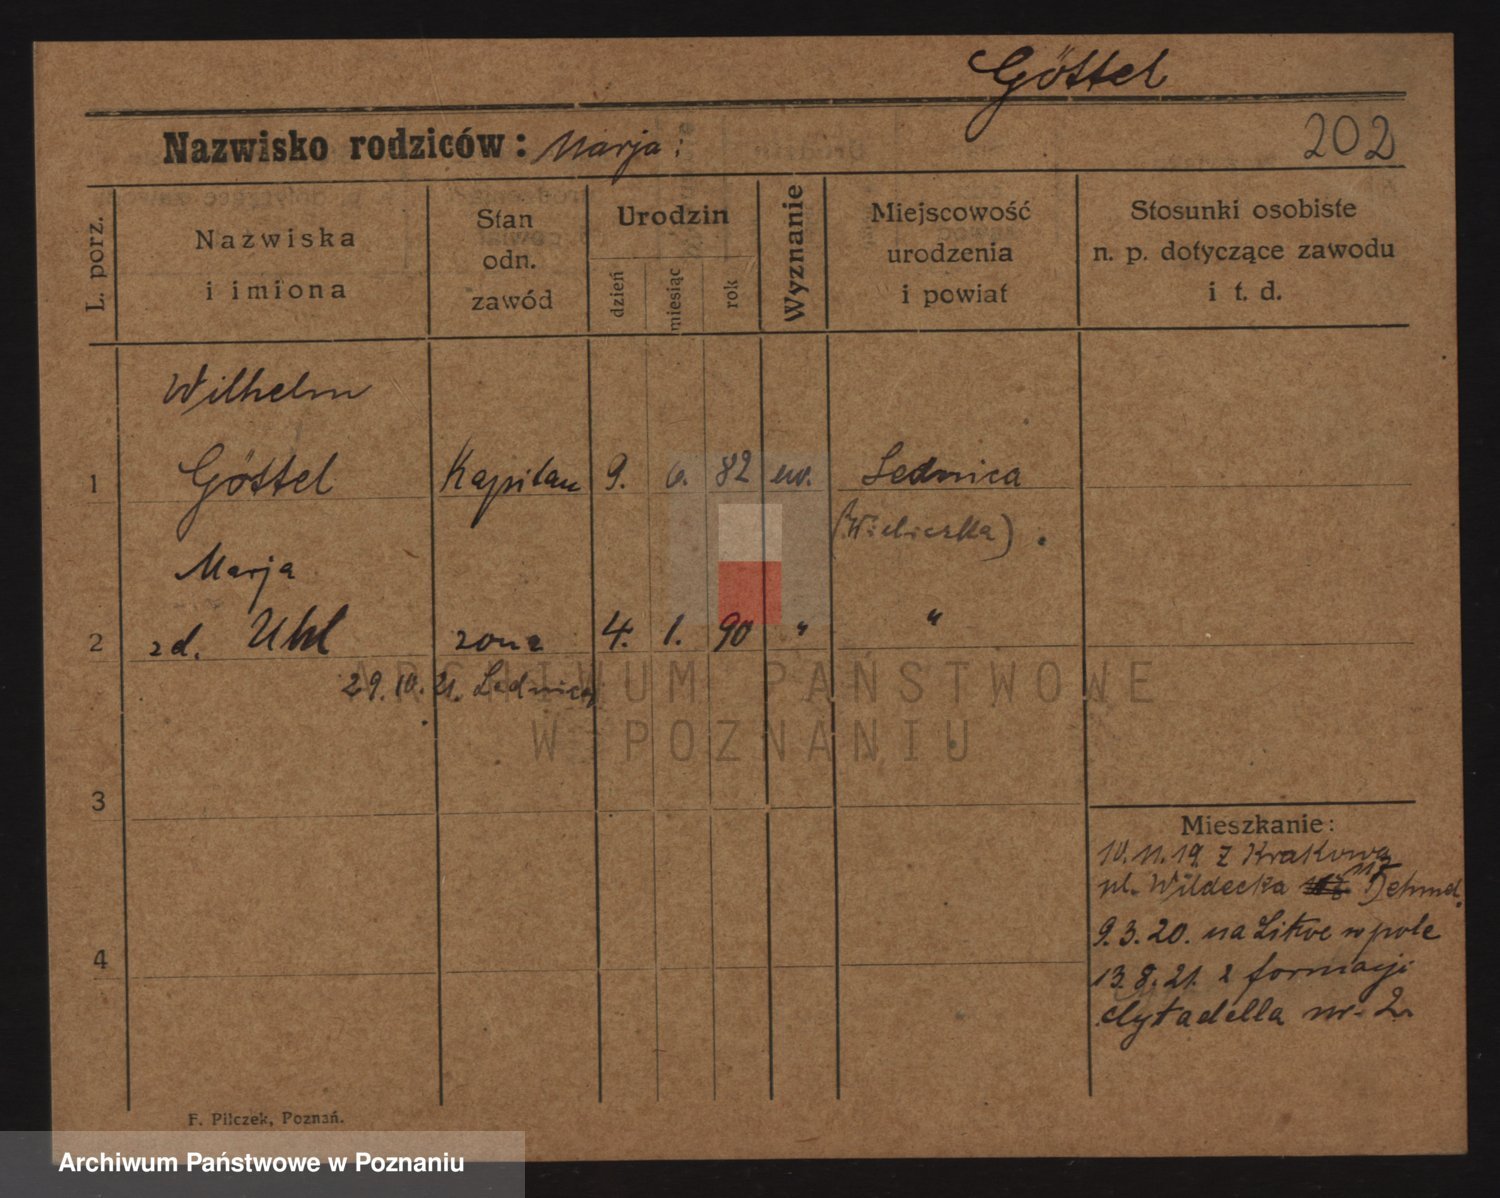 Göttel
Nazwisko rodziców: Marja:
202
L. porz.
Nazwiska
i imiona
Stan
odn.
zawód
Urodzin
dzień
miesiąc
rok
Wyznanie
Miejscowość
urodzenia
i powiat
Stosunki osobiste
n. p. dotyczące zawodu
i t. d.
Wilhelm
1 Göttel Kapitan 9. 6. 82 ew. Lednica
(Wieliczka).
Marja
2 zd. Uhl żona 4. 1. 90 " "
29.10.21. Lednica
3
4
Mieszkanie:
10.11.19 z Krakowa
ul. Wildecka
9.3.20. na Litwe w pole
13.8.21. z formacji
Cytadella nr. 2.
F. Pilczek, Poznań.
ARCHIWUM PAŃSTWOWE
W POZNANIU
Archiwum Państwowe w Poznaniu